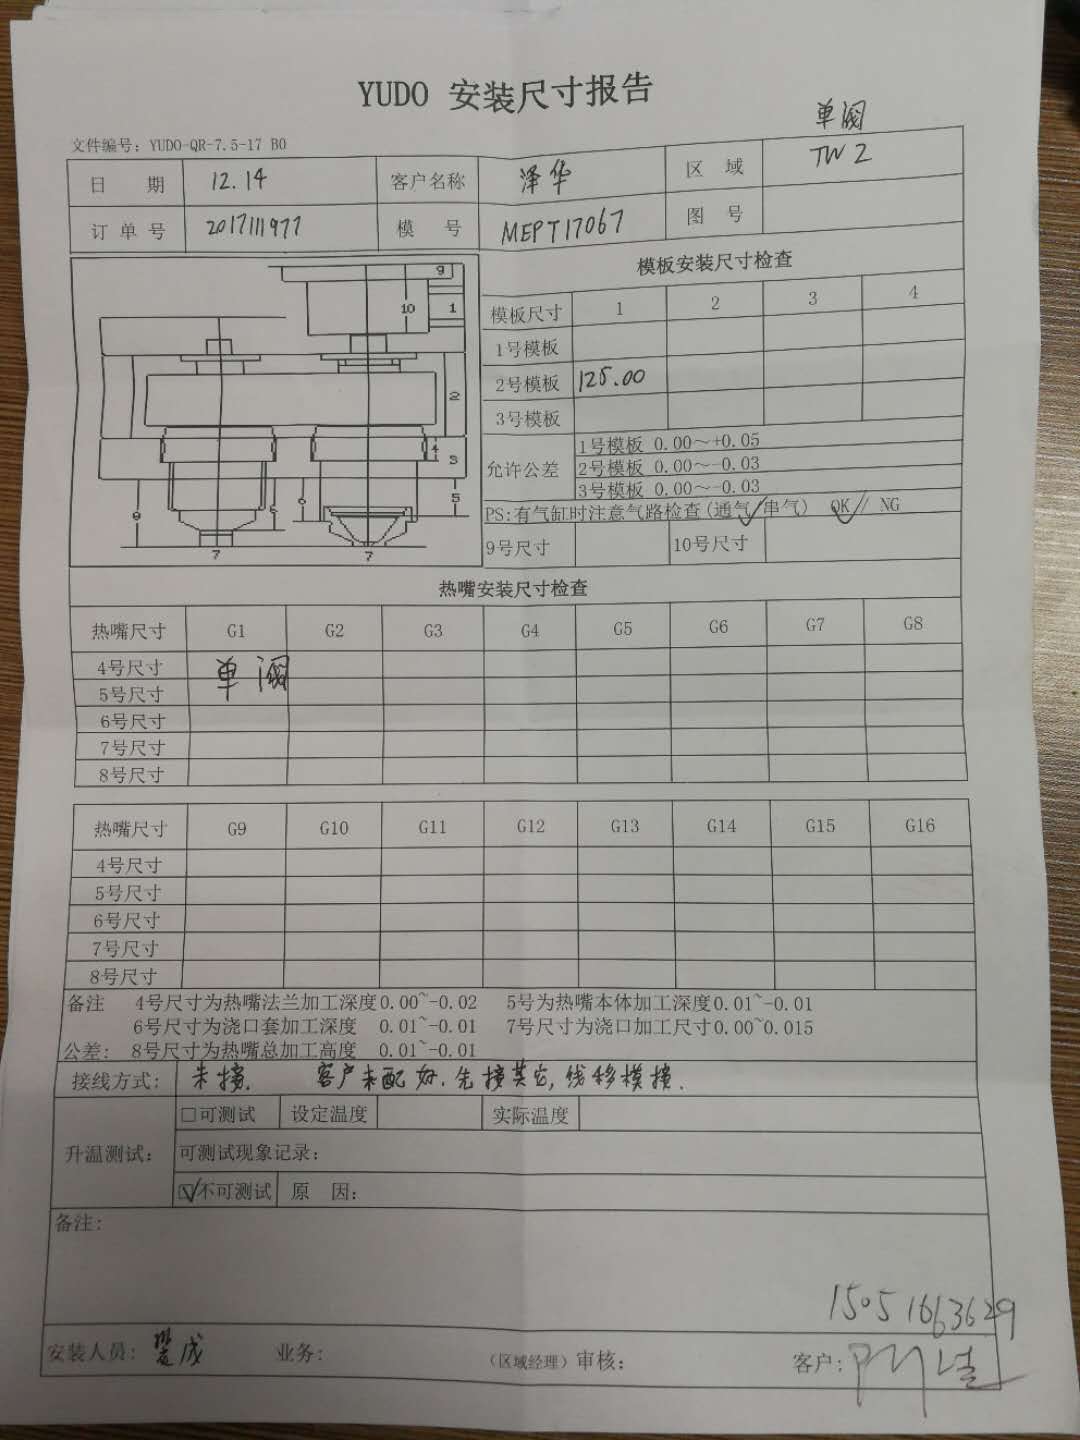 YUDO 安装尺寸报告
单阀
文件编号: YUDO-QR-7.5-17 B0
日 期 12.14 客户名称 泽华 区 域 TW2
订 单 号 2017111977 模 号 MEPT17067 图 号
模板安装尺寸检查
模板尺寸 1 2 3 4
1号模板
2号模板 125.00
3号模板
允许公差 1号模板 0.00~+0.05
2号模板 0.00~-0.03
3号模板 0.00~-0.03
PS:有气缸时注意气路检查(通气/串气) OK// NG
9号尺寸 10号尺寸
9
10 1
2
4 3
5
6 6
8
7 7
热嘴安装尺寸检查
热嘴尺寸 G1 G2 G3 G4 G5 G6 G7 G8
4号尺寸 单阀
5号尺寸
6号尺寸
7号尺寸
8号尺寸
热嘴尺寸 G9 G10 G11 G12 G13 G14 G15 G16
4号尺寸
5号尺寸
6号尺寸
7号尺寸
8号尺寸
备注 4号尺寸为热嘴法兰加工深度0.00~-0.02 5号为热嘴本体加工深度0.01~-0.01
6号尺寸为浇口套加工深度 0.01~-0.01 7号尺寸为浇口加工尺寸0.00~0.015
公差: 8号尺寸为热嘴总加工高度 0.01~-0.01
接线方式: 未接. 客户未配好.先接其它,线移模接.
□可测试 设定温度 实际温度
升温测试: 可测试现象记录:
☑不可测试 原 因:
备注:
15051663629
安装人员: 成 业务: (区域经理)审核: 客户: